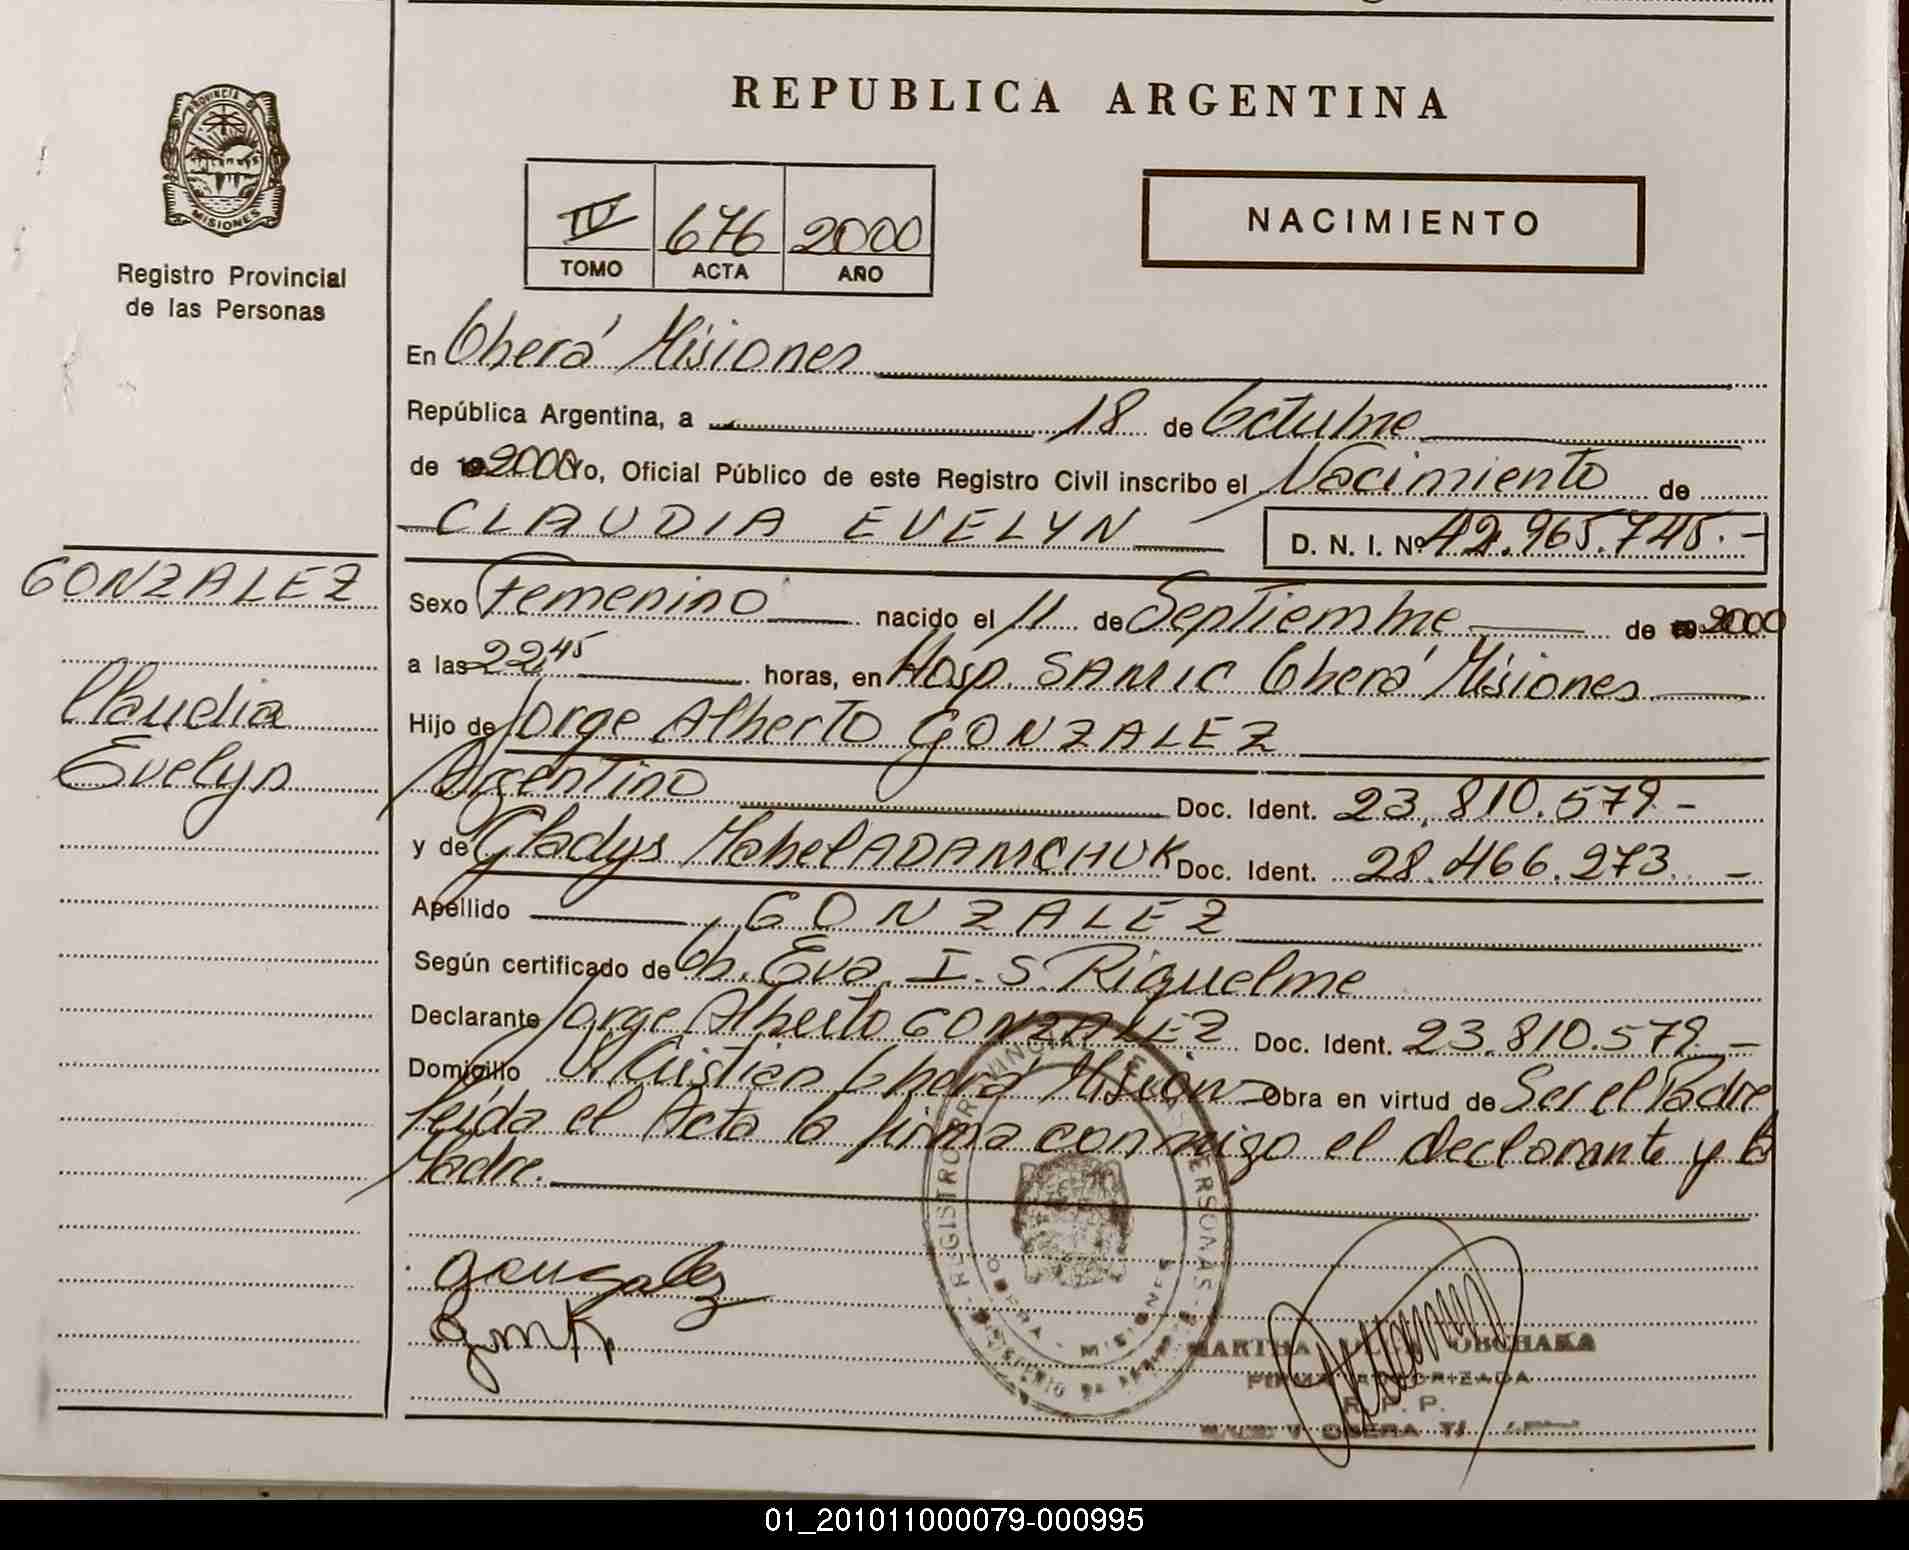 PROVINCIA DE
MISIONES
Registro Provincial
de las Personas
GONZALEZ
Claudia
Evelyn
REPUBLICA ARGENTINA
IV 676 2000
TOMO ACTA AÑO
NACIMIENTO
En Oberá Misiones
República Argentina, a 18 de Octubre
de 2000 Yo, Oficial Público de este Registro Civil inscribo el Nacimiento de
CLAUDIA EVELYN D. N. I. Nº 42.965.745.-
Sexo Femenino nacido el 11 de Septiembre de 2000
a las 22,45 horas, en Hosp. SAMIC Oberá Misiones
Hijo de Jorge Alberto GONZALEZ
Argentino Doc. Ident. 23.810.579.-
y de Gladys Mabel ADAMCHUK Doc. Ident. 28.466.273.-
Apellido GONZALEZ
Según certificado de Ob. Eva I. S. Riquelme
Declarante Jorge Alberto GONZALEZ Doc. Ident. 23.810.579.-
Domicilio Oberá Misiones Obra en virtud de Ser el Padre
leída el Acta la firma conmigo el declarante y la
Madre.
REGISTRO PROVINCIAL DE LAS PERSONAS
OBERA - MISIONES
Gonzalez
MARTHA
FIRMA AUTORIZADA
R. P. P.
OBERA
01_201011000079-000995